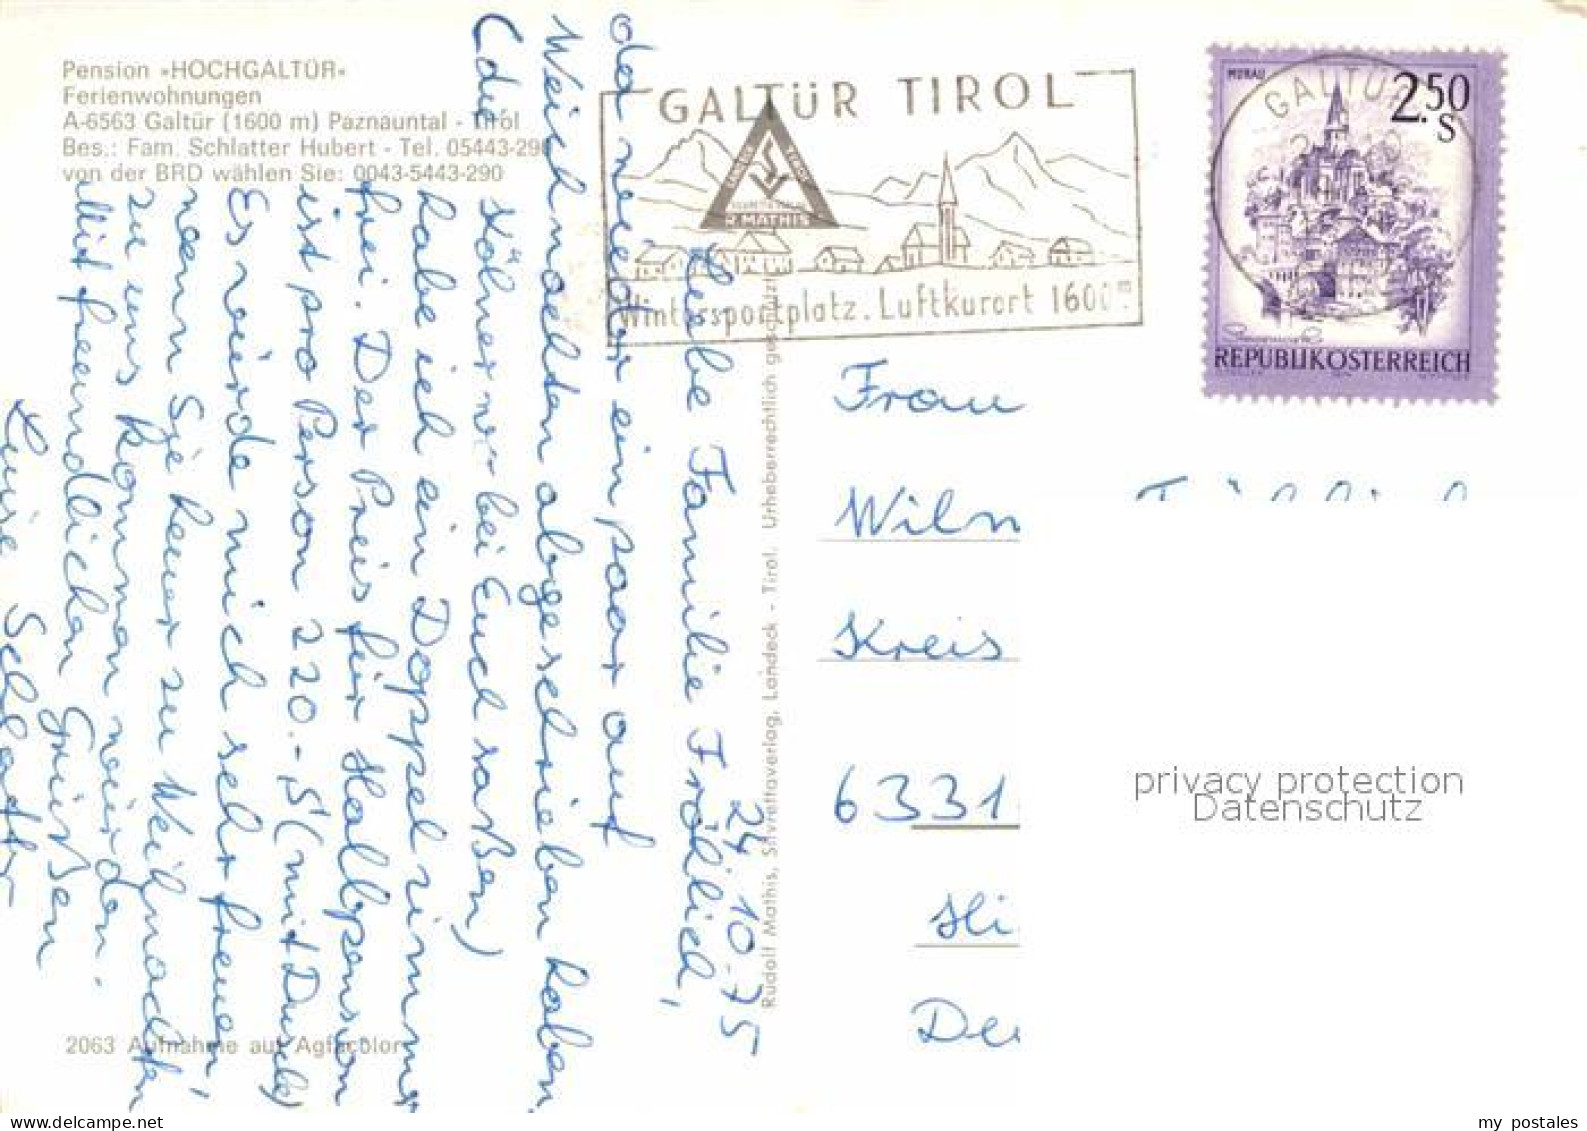 Pension »HOCHGALTÜR«
Ferienwohnungen
A-6563 Galtür (1600 m) Paznauntal - Tirol
Bes.: Fam. Schlatter Hubert - Tel. 05443-290
von der BRD wählen Sie: 0043-5443-290
GALTÜR TIROL
R. MATHIS
Wintersportplatz. Luftkurort 1600 m
GALTÜR
MURAU
2.50
S
REPUBLIK ÖSTERREICH
24.10.75
Liebe Familie Frölich,
da wieder ein paar auf
Weichnachten abgeschrieben haben
(die Kölner w bei Euch saßen)
habe ich ein Doppelzimmer
frei. Der Preis für Halbpension
ist pro Person 220.- S (mit Dusche)
Es würde mich sehr freuen,
wenn Sie heuer zu Weihnachten
zu uns kommen würden.
Mit freundlichen Grüßen
Luise Schlatter
Rudolf Mathis, Silvrettaverlag, Landeck - Tirol. Urheberrechtlich geschützt
Frau
Wilm
Kreis
6331
Hi
Deu
2063 Aufnahme auf Agfacolor
privacy protection
Datenschutz
my postales